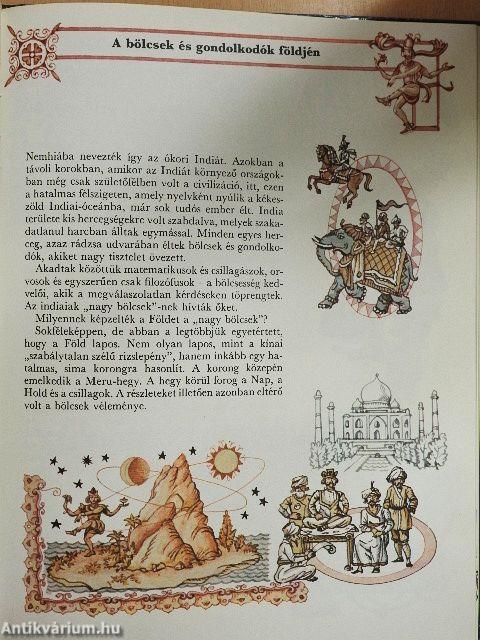 A bölcsek és gondolkodók földjén
Nemhiába nevezték így az ókori Indiát. Azokban a
távoli korokban, amikor az Indiát környező országok-
ban még csak születőfélben volt a civilizáció, itt, ezen
a hatalmas félszigeten, amely nyelvként nyúlik a kékes-
zöld Indiai-óceánba, már sok tudós ember élt. India
területe kis hercegségekre volt szabdalva, melyek szaka-
datlanul harcban álltak egymással. Minden egyes her-
ceg, azaz rádzsa udvarában éltek bölcsek és gondolko-
dók, akiket nagy tisztelet övezett.
Akadtak közöttük matematikusok és csillagászok, or-
vosok és egyszerűen csak filozófusok – a bölcsesség ked-
velői, akik a megválaszolatlan kérdéseken töprengtek.
Az indiaiak „nagy bölcsek"-nek hívták őket.
Milyennek képzelték a Földet a „nagy bölcsek"?
Sokféleképpen, de abban a legtöbbjük egyetértett,
hogy a Föld lapos. Nem olyan lapos, mint a kínai
„szabálytalan szélű rizslepény", hanem inkább egy ha-
talmas, sima korongra hasonlít. A korong közepén
emelkedik a Meru-hegy. A hegy körül forog a Nap, a
Hold és a csillagok. A részleteket illetően azonban eltérő
volt a bölcsek véleménye.
Antikvárium.hu